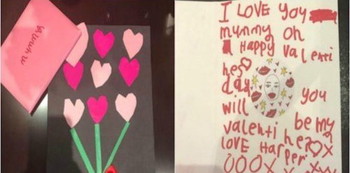 Mummy
I LOVE You
mummy oh
Happy valenti
nes
day
you
will
be my
valentines
LOVE Harper xx
OOOX